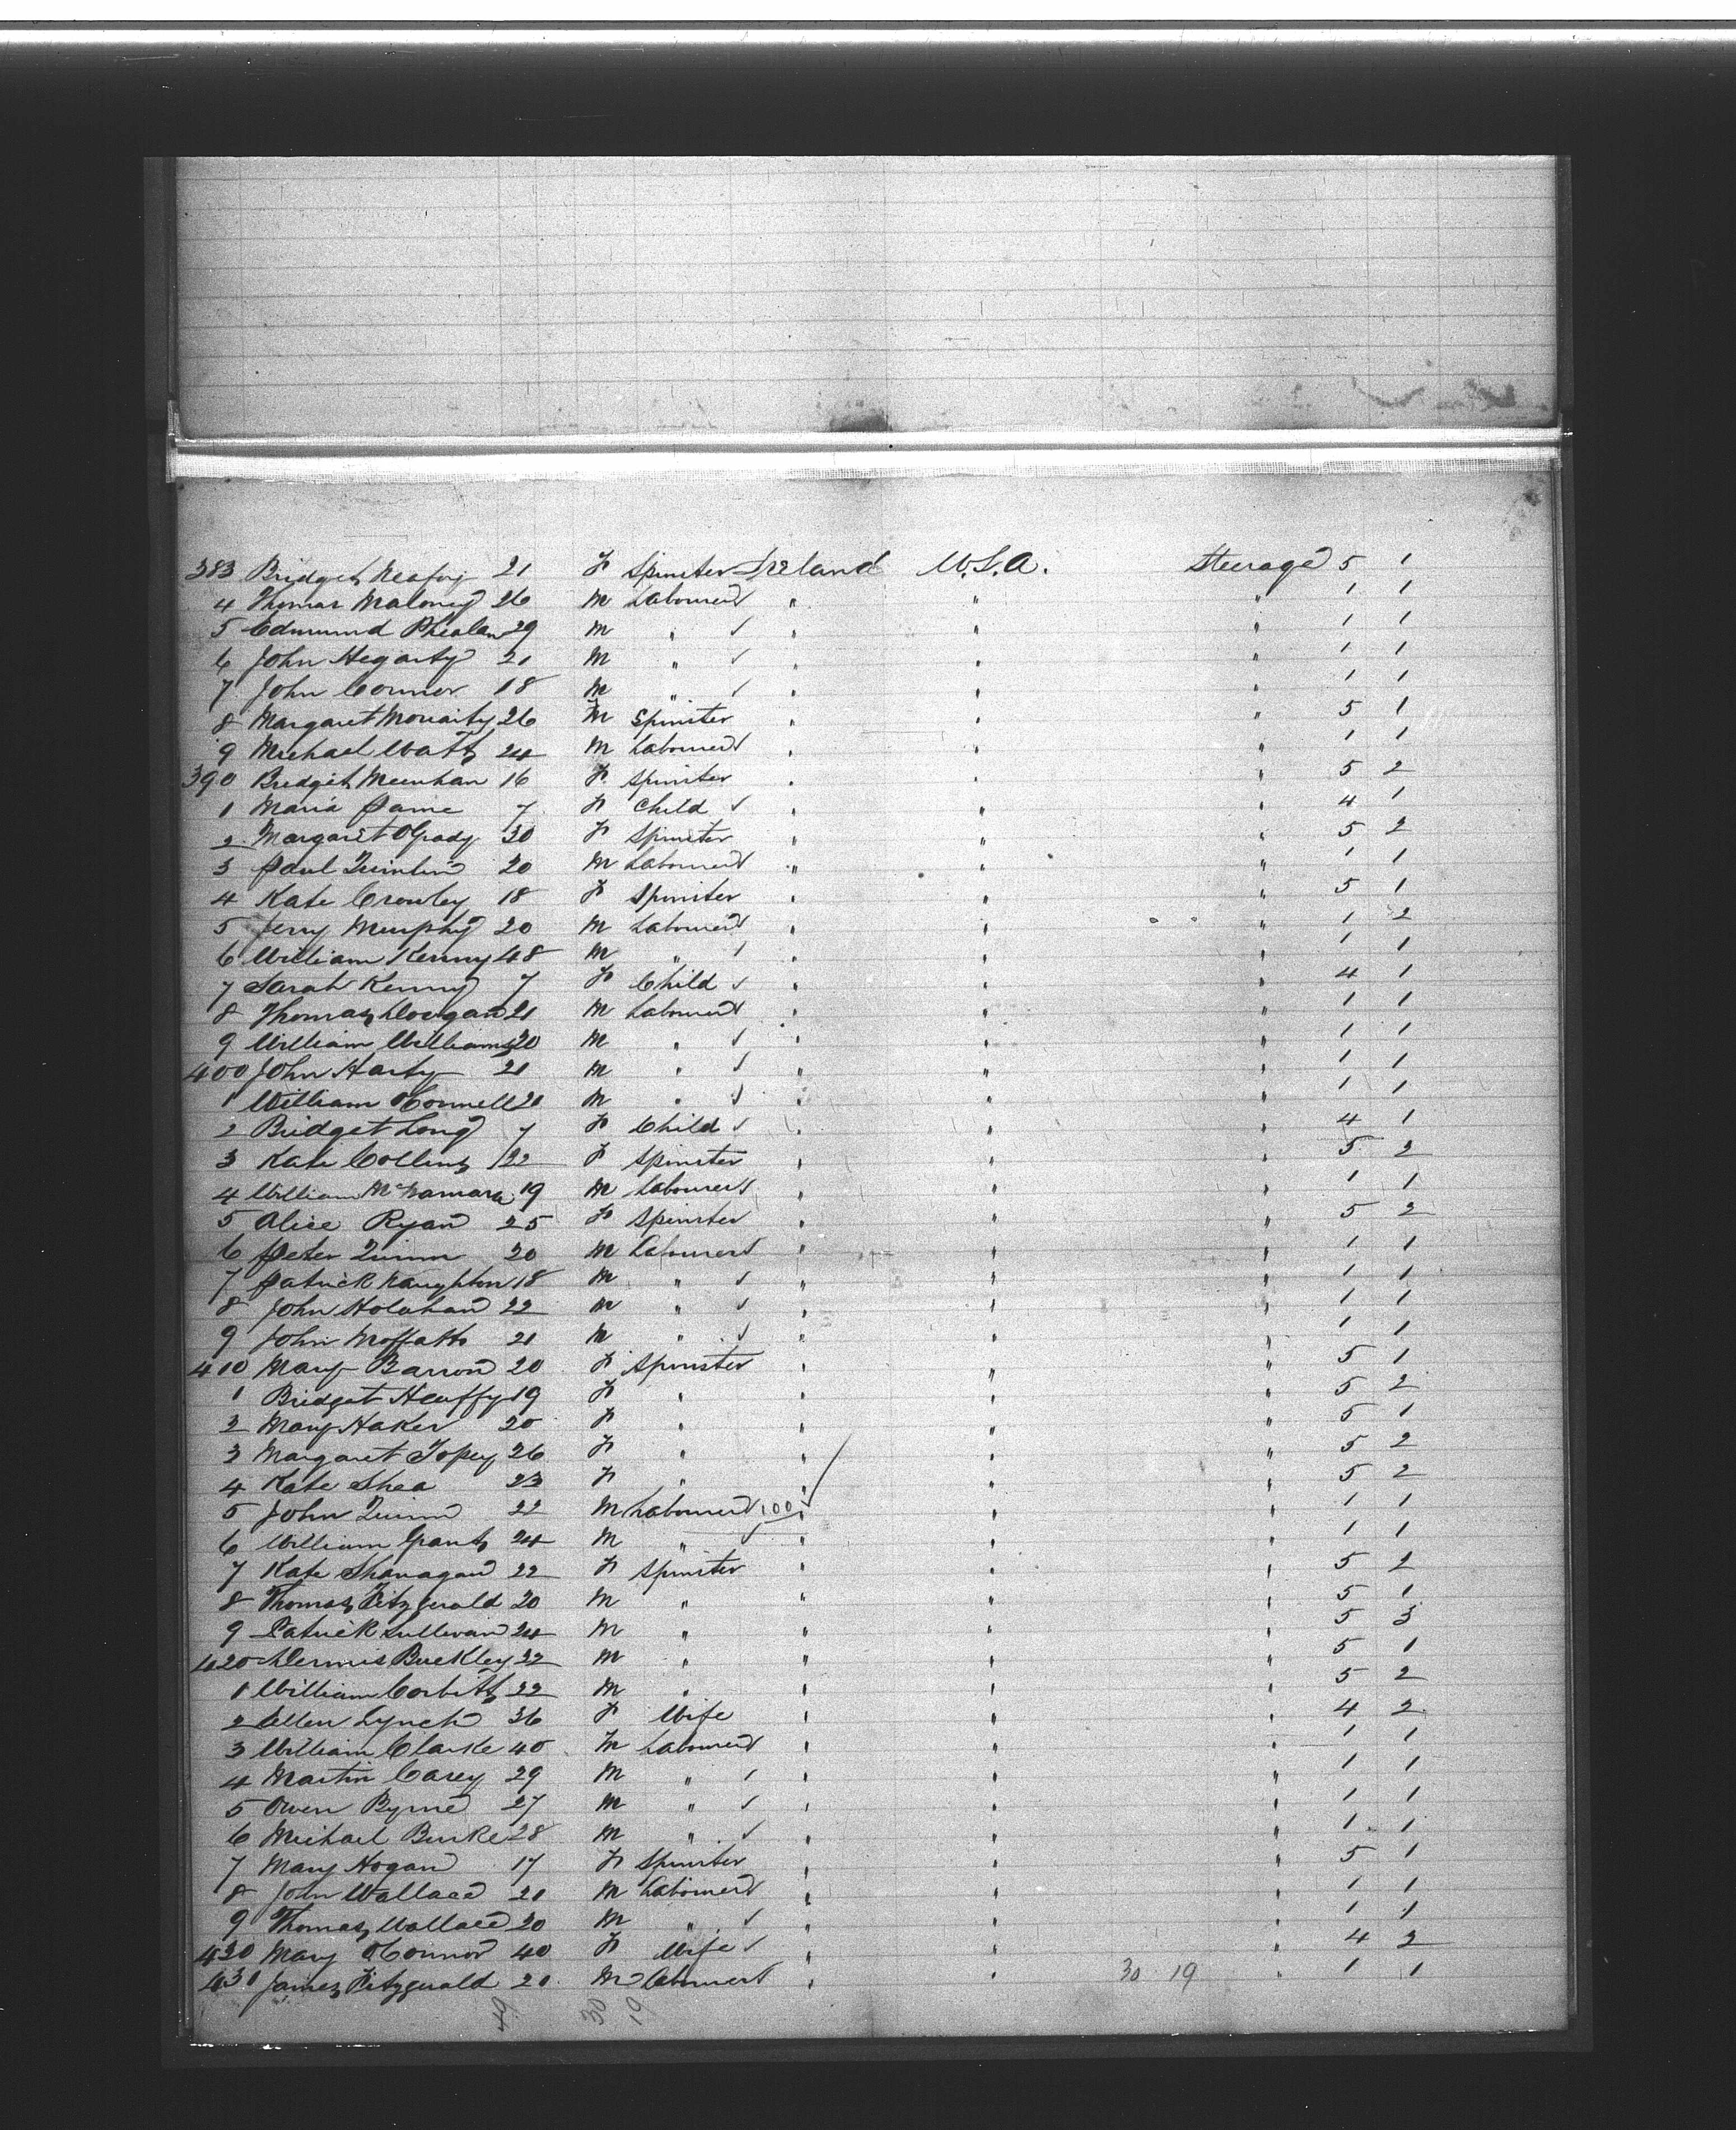 383 Bridget 21 F Spinster Ireland U.S.A. Steerage 5 1
4 Thomas Maloney 26 M Labourer " " " 1 1
5 Edmund Phealan 29 M " " " " 1 1
6 John Hegarty 21 M " " " " 1 1
7 John Connor 18 M " " " " 1 1
8 Margaret Moriarty 26 Spinster " " " 5 1
9 Michael Watts 24 M Labourer " " " 1 1
390 Bridget Meenhan 16 F Spinster " " " 5 2
1 Maria Paine 7 F Child " " " 4 1
2 Margaret OGrady 30 F Spinster " " " 5 2
3 Paul Quinlin 20 M Labourer " " " 1 1
4 Kate Crowley 18 F Spinster " " " 5 1
5 Jerry Murphy 20 M Labourer " " " 1 2
6 William Kenny 48 M " " " " 1 1
7 Sarah Kenny 7 F Child " " " 4 1
8 Thomas 21 M Labourer " " " 1 1
9 William Williams 20 M " " " " 1 1
400 John Harty 21 M " " " " 1 1
1 William OConnell 20 M " " " " 1 1
2 Bridget Long 7 F Child " " " 4 1
3 Kate Collins 22 F Spinster " " " 5 2
4 William McNamara 19 M Labourer " " " 1 1
5 Alice Ryan 25 F Spinster " " " 5 2
6 Peter Quinn 20 M Labourer " " " 1 1
7 Patrick Naughton 18 M " " " " 1 1
8 John Holahan 22 M " " " " 1 1
9 John Moffatt 21 M " " " " 1 1
410 Mary Barron 20 F Spinster " " " 5 1
1 Bridget 19 F " " " " 5 2
2 Mary Haker 20 F " " " " 5 1
3 Margaret 26 F " " " " 5 2
4 Kate Shea 23 F " " " " 5 2
5 John Quinn 22 M Labourer 100 " " " 1 1
6 William Grant 24 M " " " " 1 1
7 Kate Shanagan 22 F Spinster " " " 5 2
8 Thomas Fitzgerald 20 M " " " " 5 1
9 Patrick Sullivan 24 M " " " " 5 3
420 Dennis Buckley 22 M " " " " 5 1
1 William Corbitt 22 M " " " " 5 2
2 Ellen Lynch 36 F Wife " " " 4 2
3 William Clarke 40 M Labourer " " " 1 1
4 Martin Carey 29 M " " " " 1 1
5 Owen Byrne 27 M " " " " 1 1
6 Michael Burke 28 M " " " " 1 1
7 Mary Hogan 17 F Spinster " " " 5 1
8 John Wallace 21 M Labourer " " " 1 1
9 Thomas Wallace 20 M " " " " 1 1
420 Mary OConnor 40 F Wife " " " 4 2
430 James Fitzgerald 20 M Labourer " " 30 19 " 1 1
49 30 19